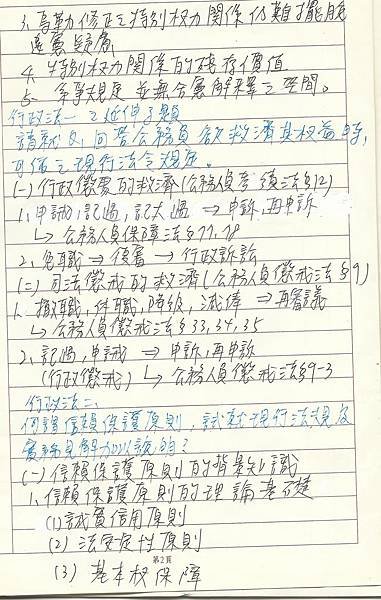 3. 烏勒修正之特別权力關係仍難擺脫
違憲疑慮
4. 特別权力關係的殘存價值
5. 系爭規定並無合憲解釋之空間。
行政法一之延伸子題
請就 回答公務員欲救濟其权益時,
可循之現行法令規定。
(一)行政懲處的救濟(公務人員考績法§12)
1. 申誡,記過,記大過 ⇒ 申訴,再申訴
↳ 公務人員保障法§77,78
2. 免職 ⇒ 復審 → 行政訴訟
(二)司法懲戒的救濟(公務人員懲戒法§9)
1. 撤職,休職,降級,減俸 ⇒ 再審議
↳ 公務人員懲戒法§33,34,35
2. 記過,申誡 ⇒ 申訴,再申訴
(行政懲戒) ↳ 公務人員懲戒法§9-3
行政法二:
何謂信賴保護原則,試就現行法規及
實論見解加以說明?
(一)信賴保護原則的背景知識
1. 信賴保護原則的理論基礎
(1)誠實信用原則
(2) 法安定性原則
第2頁
(3) 基本权保障